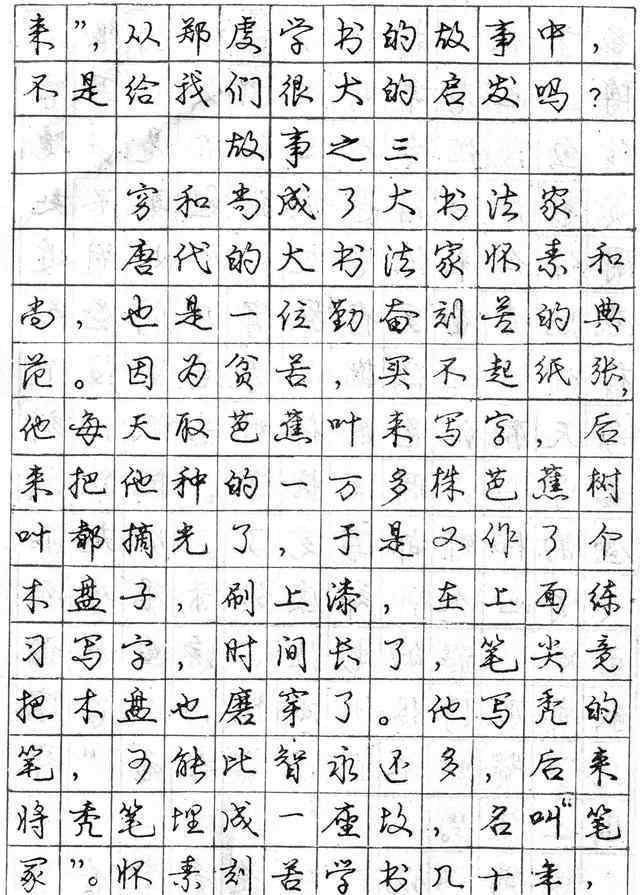 来”，从郑虔学书的故事中，
不是给我们很大的启发吗？
故事之三
穷和尚成了大书法家
唐代的大书法家怀素和
尚，也是一位勤奋刻苦的典
范。因为贫苦，买不起纸张，
他每天取芭蕉叶来写字，后
来把他种的一万多株芭蕉树
叶都摘光了，于是又作了个
木盘子，刷上漆，在上面练
习写字，时间长了，笔尖竟
把木盘也磨穿了。他写秃的
笔，可能比智永还多，后来
将秃笔埋成一座故，名叫“笔
冢”。怀素刻苦学书几十年，